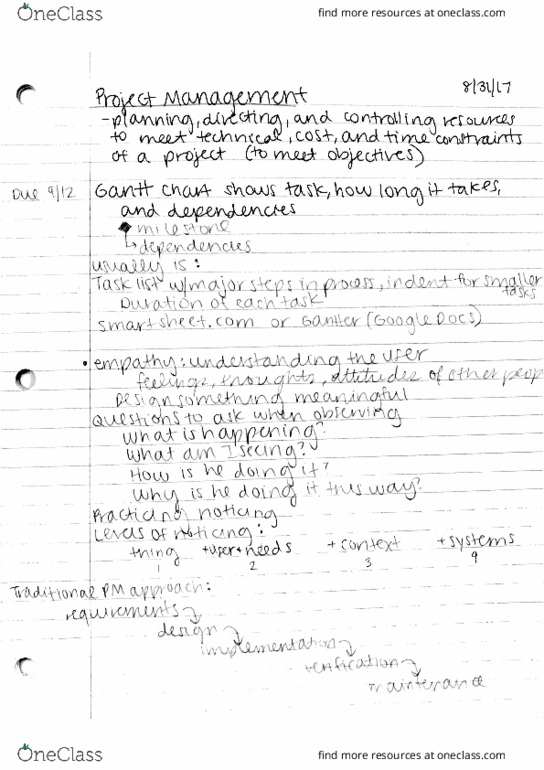 OneClass
find more resources at oneclass.com
8/31/17
Project Management
- planning, directing, and controlling resources
to meet technical, cost, and time constraints
of a project (to meet objectives)
Due 9/12
Gantt chart shows task, how long it takes,
and dependencies
◆ milestone
↳ dependencies
usually is:
Task list w/major steps in process, indent for smaller
tasks
Duration of each task
smartsheet.com or Gantter (Google Docs)
• empathy: understanding the user
feelings, thoughts, attitudes of other peop
Design something meaningful
Questions to ask when observing
What is happening?
What am I seeing?
How is he doing it?
Why is he doing it this way?
Practicing noticing
Levels of noticing:
thing +user+needs +context +systems
1 2 3 4
Traditional PM approach:
requirements
design
implementation
verification
maintenance
OneClass
find more resources at oneclass.com